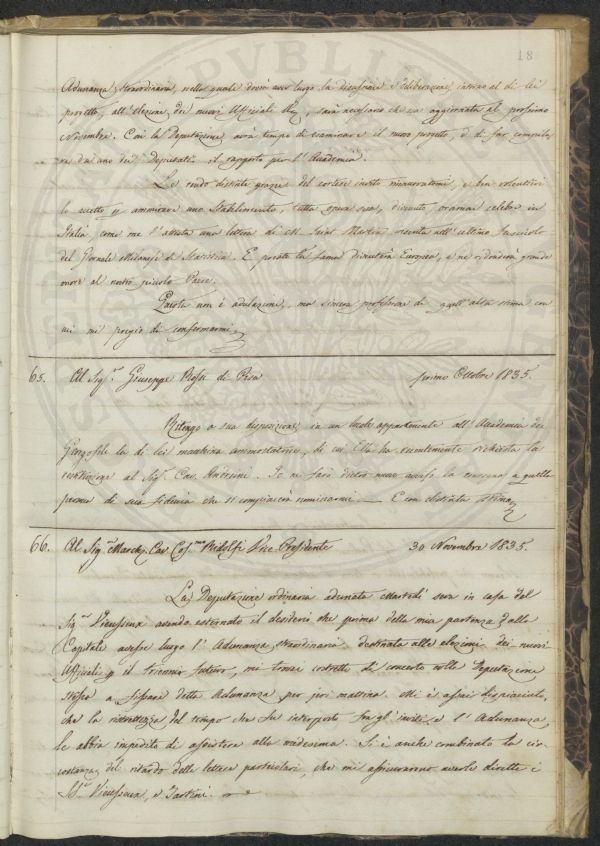 18
Adunanza straordinaria, nella quale dovrà aver luogo la discussione e deliberazione intorno al di lei
progetto, all'elezione dei nuovi Uffiziali, sarà necessario che sia aggiornata al prossimo
Novembre. Così la Deputazione avrà tempo di esaminare il nuovo progetto, e di far compila-
re da uno dei Deputati il rapporto per l'Accademia.
Le rendo distinte grazie del cortese invito rinnovatomi, e ben volentieri
lo accetto p ammirare uno Stabilimento, tutta opera sua, divenuto oramai celebre in
Italia, come me l'attesta una lettera di M. Saint Martin inserita nell'ultimo fascicolo
del Giornale Milanese di Statistica. E portata la fama diventerà Europea, e ne ridonderà grande
onore al nostro piccolo Paese.
Questa non è adulazione, ma sincera professione di quell'alta stima con
cui mi pregio di confermarmi
65. Al Sig.r Giuseppe Rossi di Pisa primo Ottobre 1835.
Ritengo a sua disposizione in un locale appartenente all'Accademia dei
Georgofili la di lei macchina ammostatrice, di cui Ella ha recentemente richiesta la
restituzione al Sig.r Cav. Andreini. Io ne farò dietro nuovo avviso la consegna a quella
persona di sua fiducia che si compiacerà nominarmi — E con distinta stima
66. Al Sig.r March. Cav. Cos.mo Ridolfi Vice-Presidente 30 Novembre 1835.
La Deputazione ordinaria adunata Martedì sera in casa del
Sig.r Vieusseux avendo esternato il desiderio che prima della mia partenza dalla
Capitale avesse luogo l'Adunanza straordinaria destinata alle elezioni dei nuovi
Uffiziali p il triennio futuro, mi trovai costretto di concerto colla Deputazione
stessa a fissare detta Adunanza per jeri mattina. Mi è assai dispiaciuto,
che la ristrettezza del tempo che fu interposto fra gl'inviti e l'Adunanza,
Le abbia impedito di assistere alla medesima. Si è anche combinata la cir-
costanza del ritardo delle lettere particolari, che mi assicurarono averle dirette i
SS.ri Vieusseux, e Tartini.